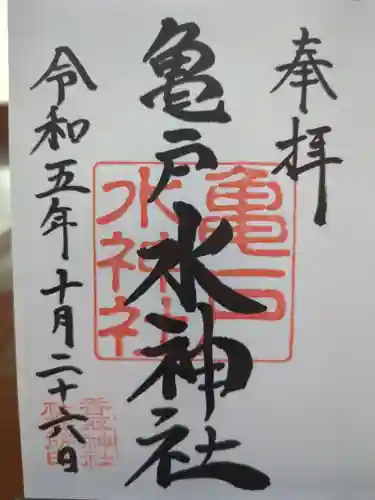 奉拝
亀戸水神社
令和五年十月二十六日
亀戸
水神社
香取神社